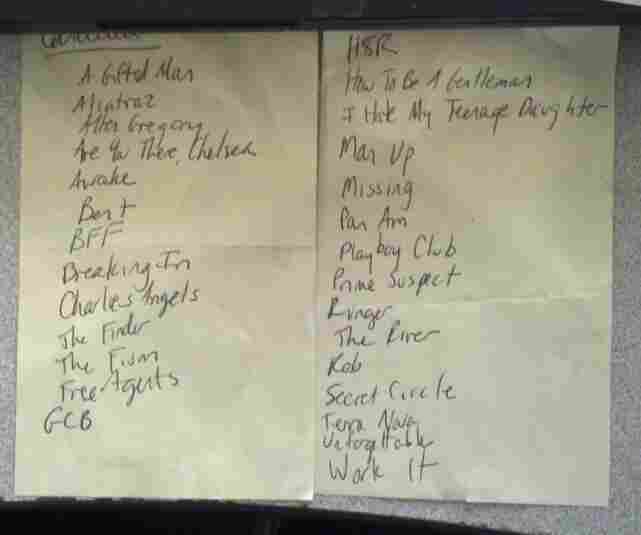 Cancelled
A Gifted Man
Alcatraz
Allen Gregory
Are You There, Chelsea
Awake
Bent
BFF
Breaking In
Charlies Angels
The Finder
The Firm
Free Agents
GCB
H8R
How To Be A Gentleman
I Hate My Teenage Daughter
Man Up
Missing
Pan Am
Playboy Club
Prime Suspect
Ringer
The River
Rob
Secret Circle
Terra Nova
Unforgettable
Work It